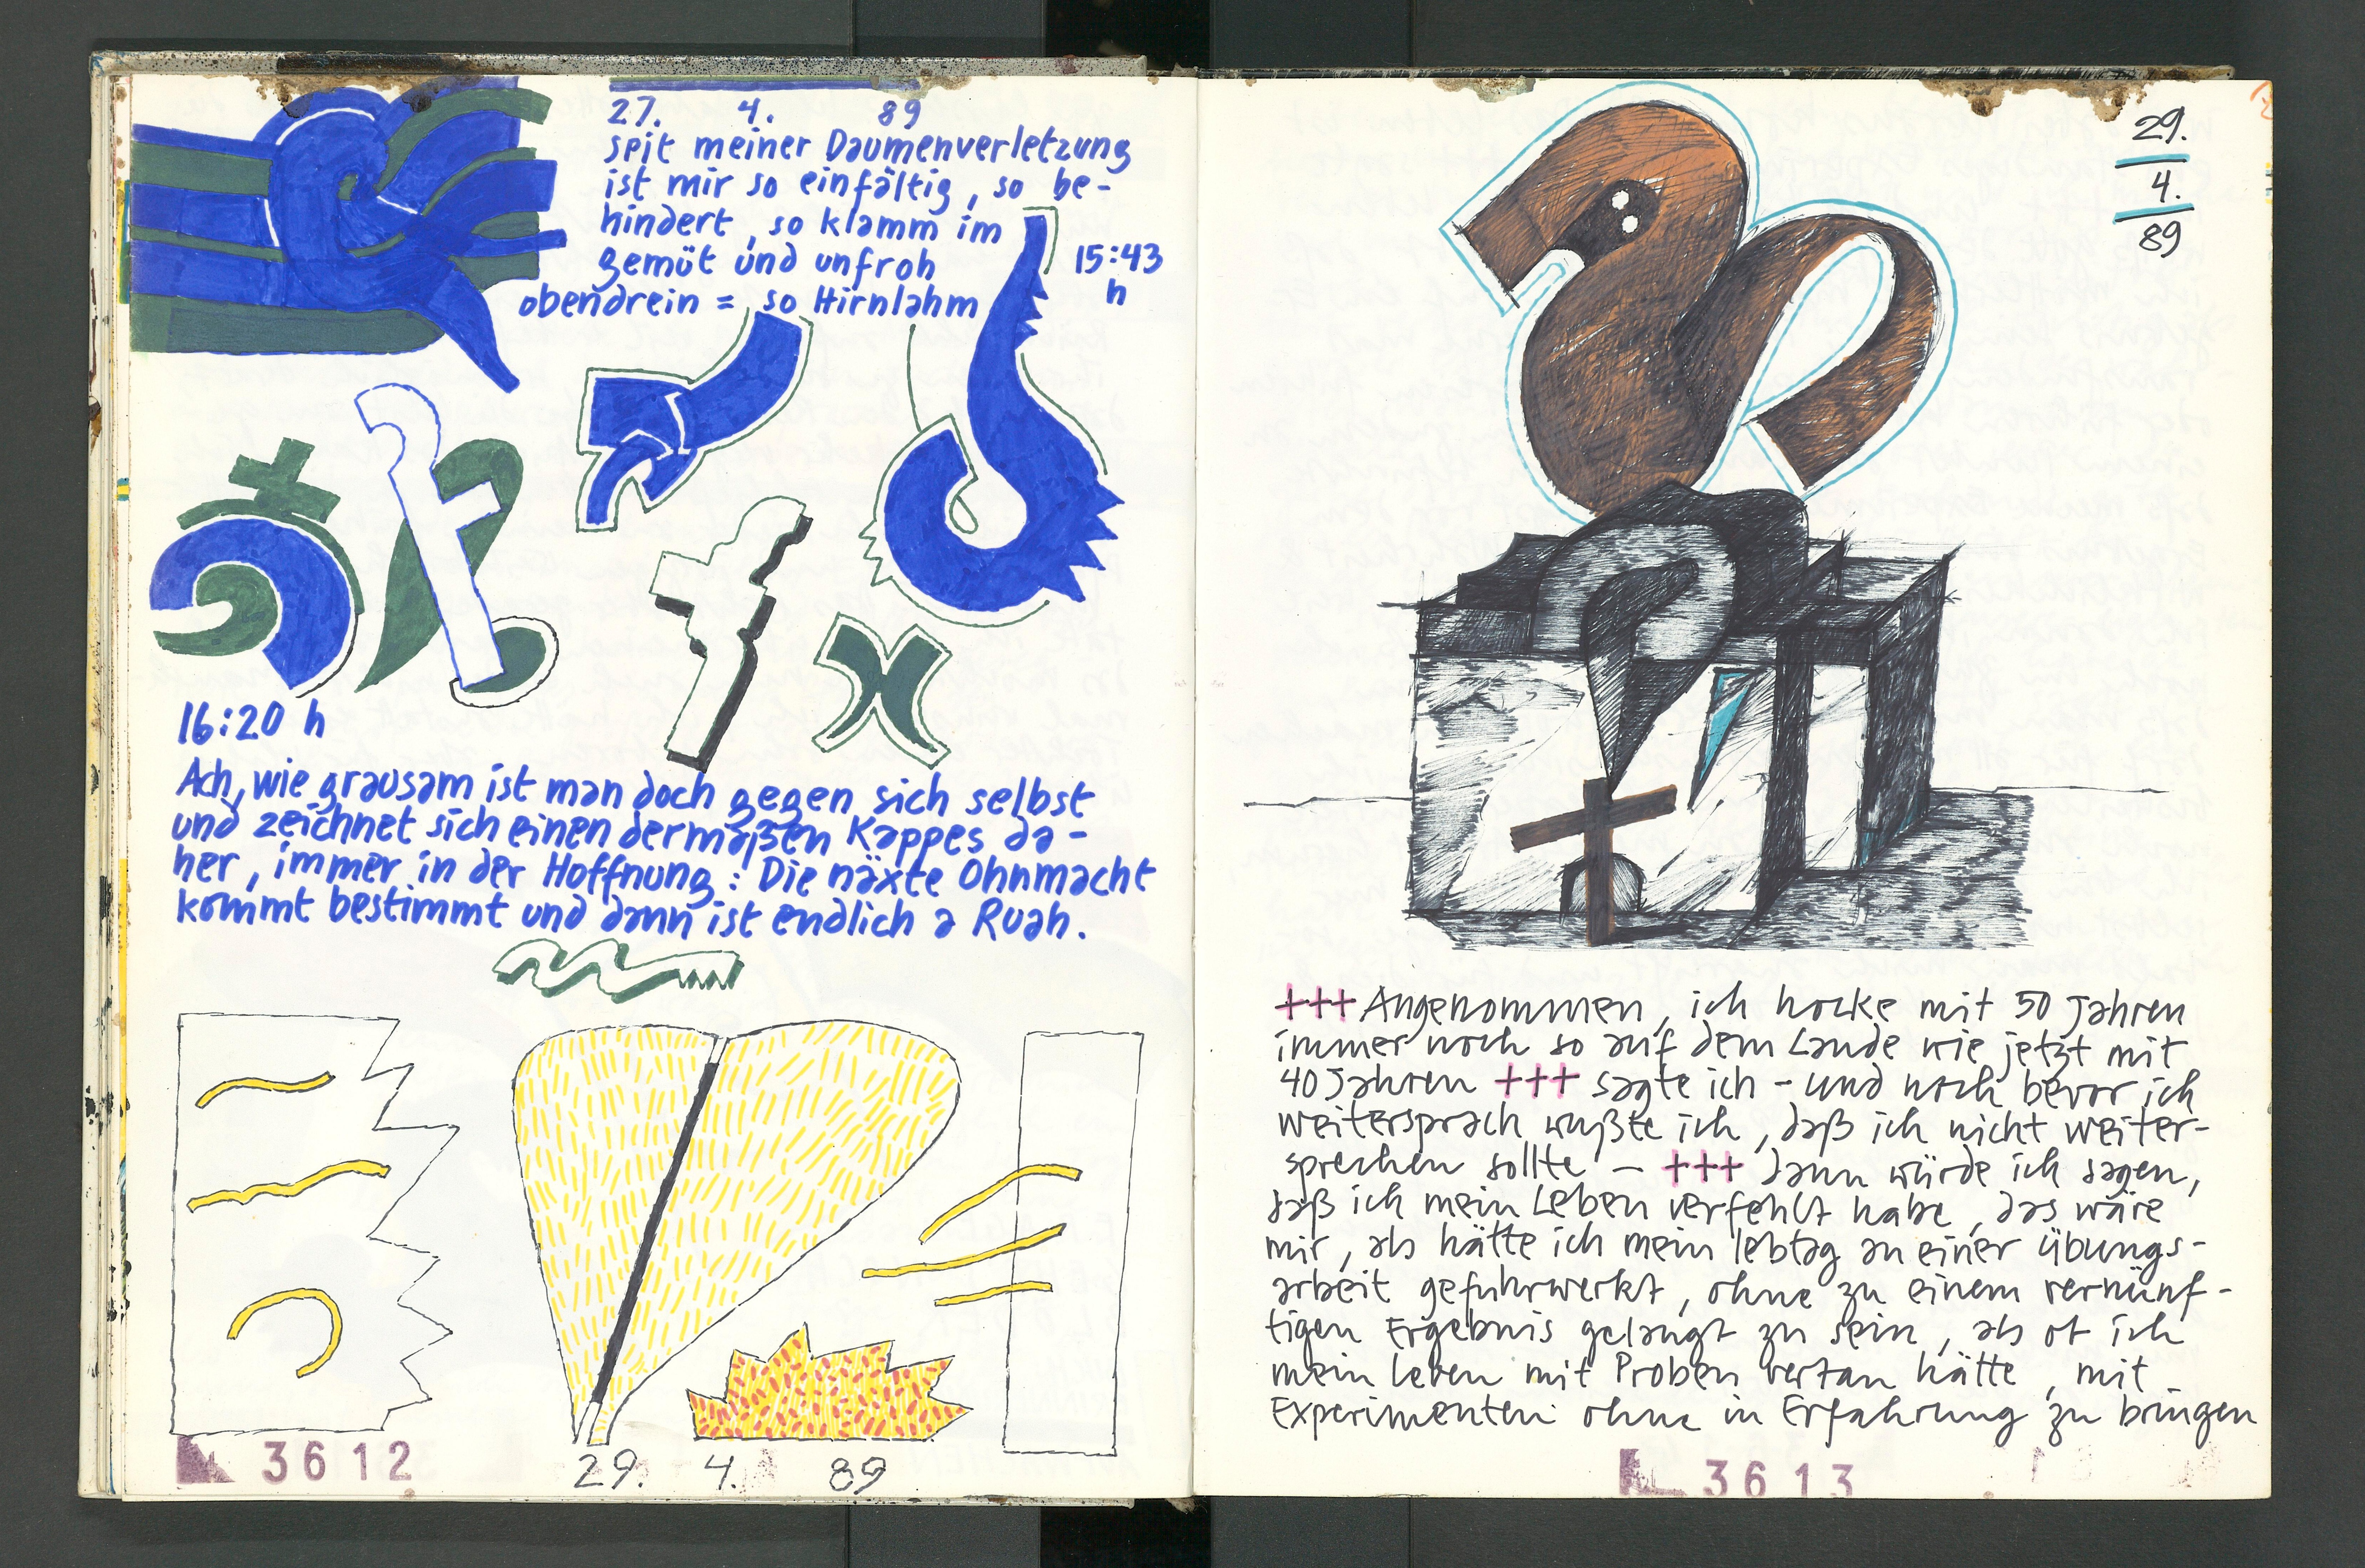 27. 4. 89
seit meiner Daumenverletzung
ist mir so einfältig, so be-
hindert, so klamm im
gemüt und unfroh
obendrein = so Hirnlahm
15:43
h
16:20 h
Ach, wie grausam ist man doch gegen sich selbst
und zeichnet sich einen dermaßen Kappes da-
her, immer in der Hoffnung: Die näxte Ohnmacht
kommt bestimmt und dann ist endlich a Ruah.
29. 4. 89
3612
29.
4.
89
+++ Angenommen, ich hocke mit 50 Jahren
immer noch so auf dem Lande wie jetzt mit
40 Jahren +++ sagte ich - und noch bevor ich
weitersprach wußte ich, daß ich nicht weiter-
sprechen sollte — +++ dann würde ich sagen,
daß ich mein Leben verfehlt habe, das wäre
mir, als hätte ich mein lebtag an einer übungs-
arbeit gefuhrwerkt, ohne zu einem vernünf-
tigen Ergebnis gelangt zu sein, als ob ich
mein Leben mit Proben vertan hätte, mit
Experimenten ohne in Erfahrung zu bringen
3613